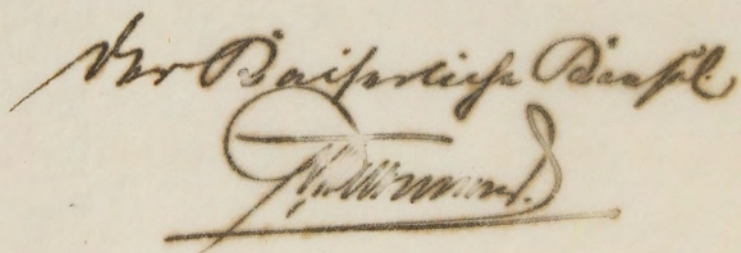 Der Kaiserliche Konsul.